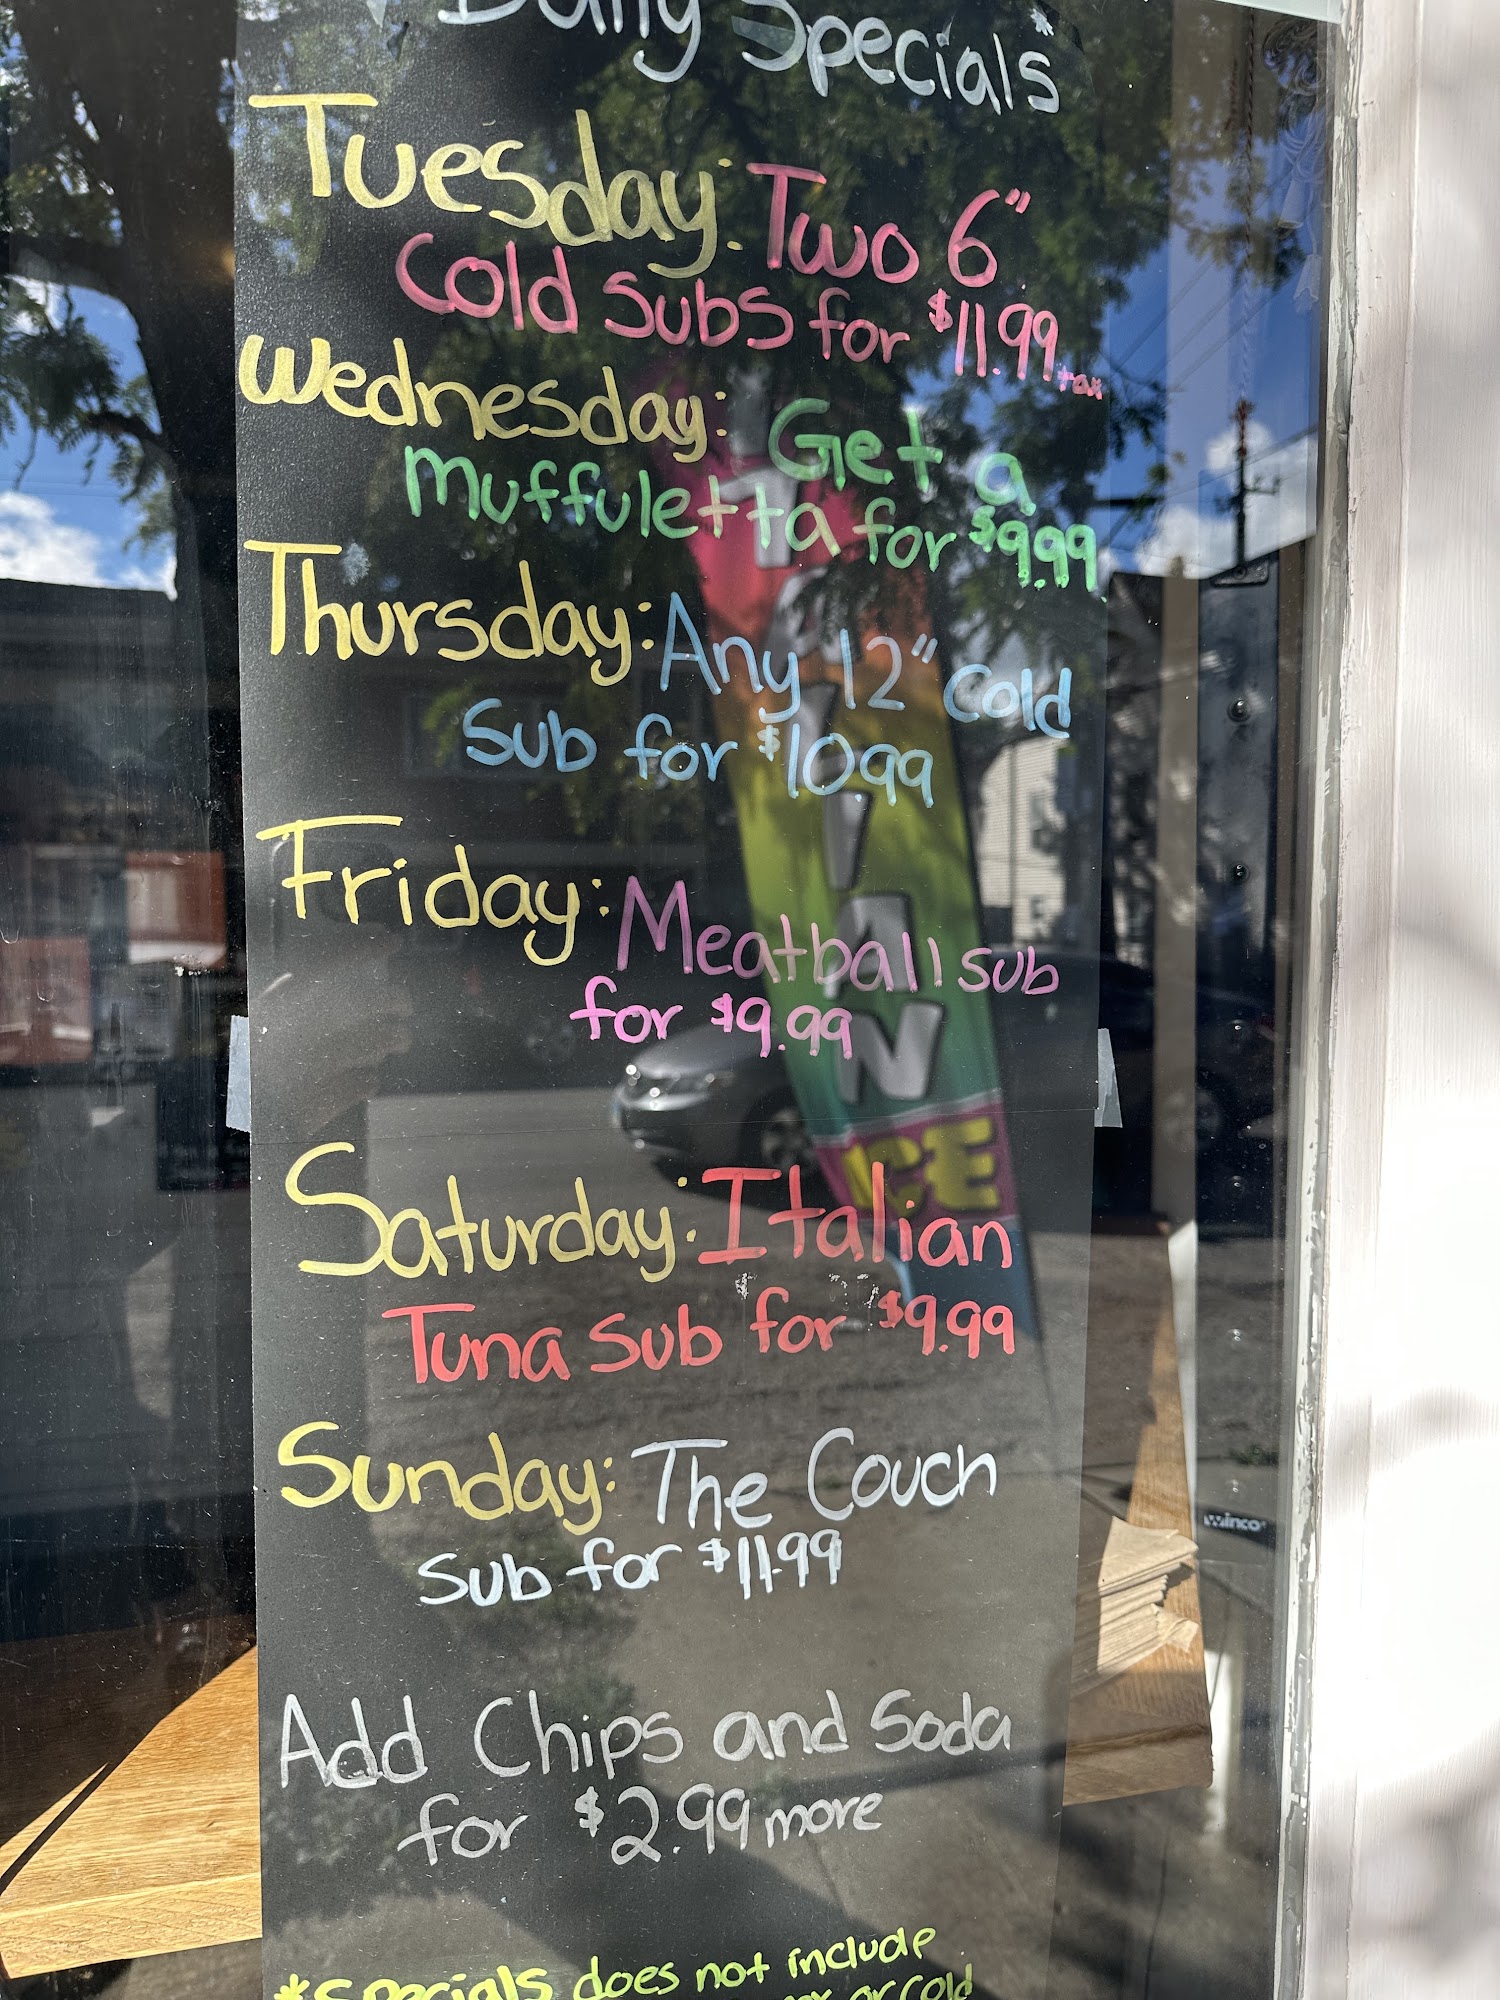 Daily Specials
Tuesday: Two 6"
Cold Subs for $11.99 +tax
Wednesday: Get a
Muffuletta for $9.99
Thursday: Any 12" Cold
Sub for $10.99
Friday: Meatball Sub
for $9.99
Saturday: Italian
Tuna Sub for $9.99
Sunday: The Couch
Sub for $11.99
Add Chips and Soda
for $2.99 more
*Specials does not include
or cold
ICE
winco